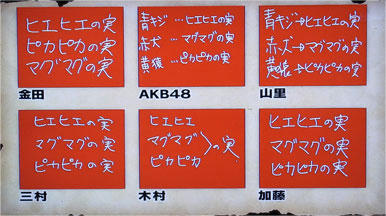 ヒエヒエの実
ピカピカの実
マグマグの実
金田
青キジ…ヒエヒエの実
赤犬…マグマグの実
黄猿…ピカピカの実
AKB48
青キジ→ヒエヒエの実
赤犬→マグマグの実
黄猿→ピカピカの実
山里
ヒエヒエの実
マグマグの実
ピカピカの実
三村
ヒエヒエ
マグマグ の実
ピカピカ
木村
ヒエヒエの実
マグマグの実
ピカピカの実
加藤